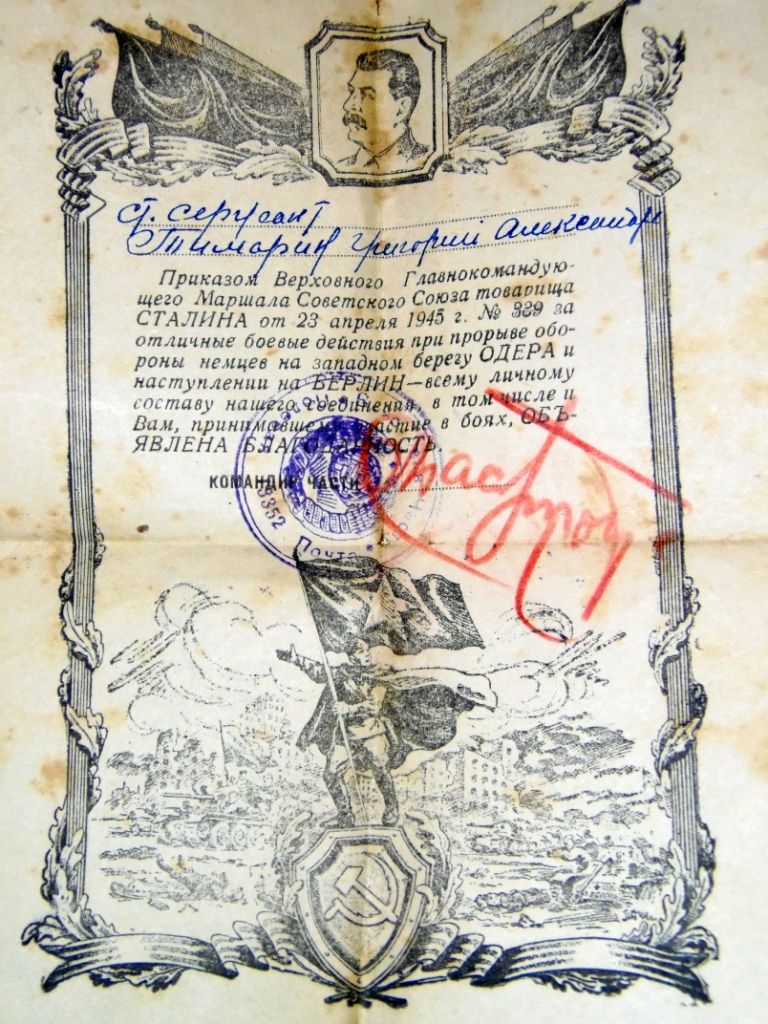 ст. сержант
Тимарин Григорий Александр
Приказом Верховного Главнокомандую-
щего Маршала Советского Союза товарища
СТАЛИНА от 23 апреля 1945 г. № 339 за
отличные боевые действия при прорыве обо-
роны немцев на западном берегу ОДЕРА и
наступлении на БЕРЛИН—всему личному
составу нашего соединения, в том числе и
Вам, принимавшему участие в боях, ОБЪ-
ЯВЛЕНА БЛАГОДАРНОСТЬ.
КОМАНДИР ЧАСТИ
Почта